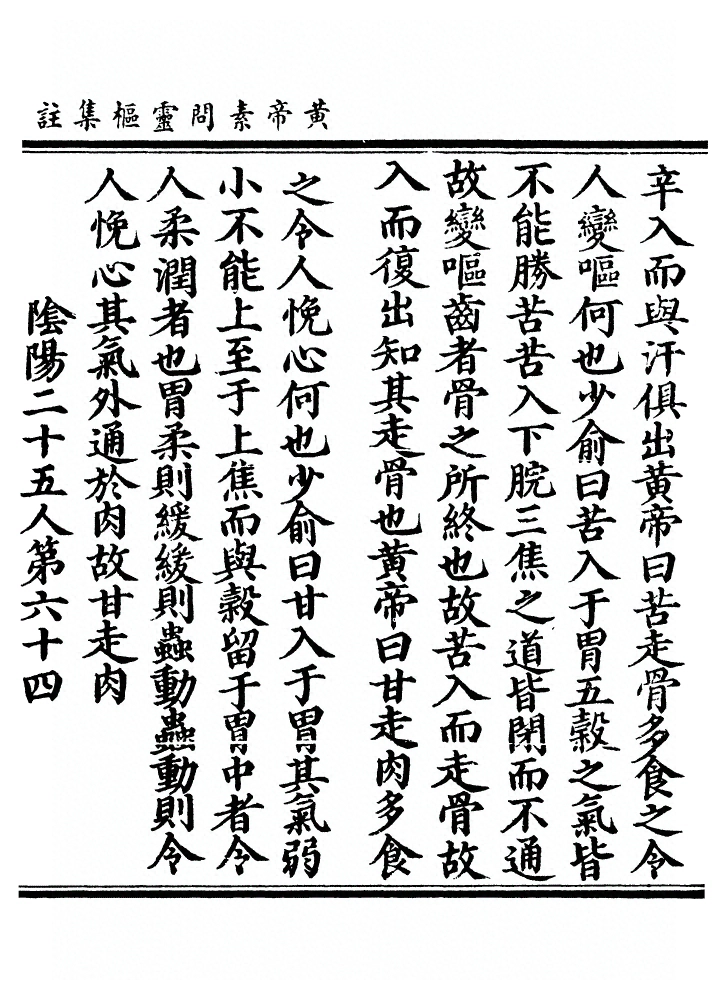 黃帝素問靈樞集註
辛入而與汗俱出黃帝曰苦走骨多食之令
人變嘔何也少俞曰苦入于胃五穀之氣皆
不能勝苦苦入下脘三焦之道皆閉而不通
故變嘔齒者骨之所終也故苦入而走骨故
入而復出知其走骨也黃帝曰甘走肉多食
之令人悗心何也少俞曰甘入于胃其氣弱
小不能上至于上焦而與穀留于胃中者令
人柔潤者也胃柔則緩緩則蟲動蟲動則令
人悗心其氣外通於肉故甘走肉
陰陽二十五人第六十四